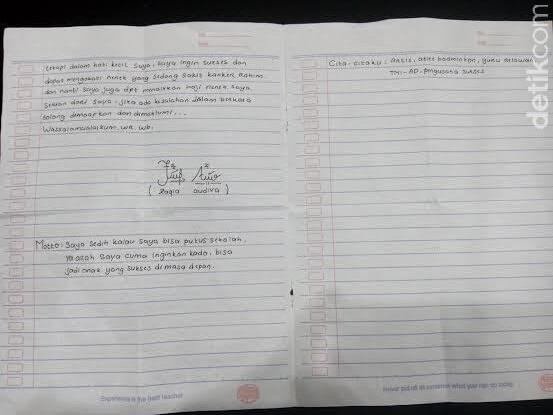 tetapi dalam hati kecil saya, saya ingin sukses dan
dapat mengobati nenek yang sedang sakit kanker rahim
dan nanti saya juga dpt menaikan haji nenek saya.
Sekian dari saya. jika ada kesalahan dalam berkata
tolong dimaafkan dan dimaklumi...
Wassalamualaikum. wr. wb.
( Zagia audiva )
Motto: Saya sedih kalau saya bisa putus sekolah,
Ya allah saya cuma inginkan kado, bisa
jadi anak yang sukses di masa depan.
Experience is the best teacher
Cita-citaku: Artis, atlet badminton, guru relawan,
TNI-AD, pengusaha sukses
Never put off till tomorrow what you can do today
detikcom